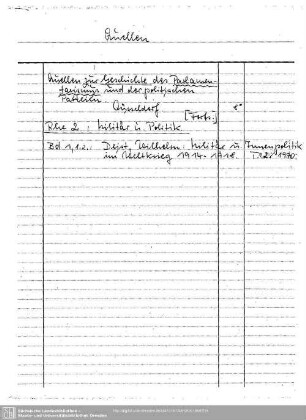 Quellen
Quellen zur Geschichte des Parlamen-
tarismus und der politischen
Parteien. Düsseldorf 8°
[Forts.]
Rhe 2: Militär u. Politik
Bd 1,1.2.: Deist, Wilhelm: Militär u. Innenpolitik
im Weltkrieg 1914-1918. 1970.
Sächsische Landesbibliothek -
Staats- und Universitätsbibliothek Dresden